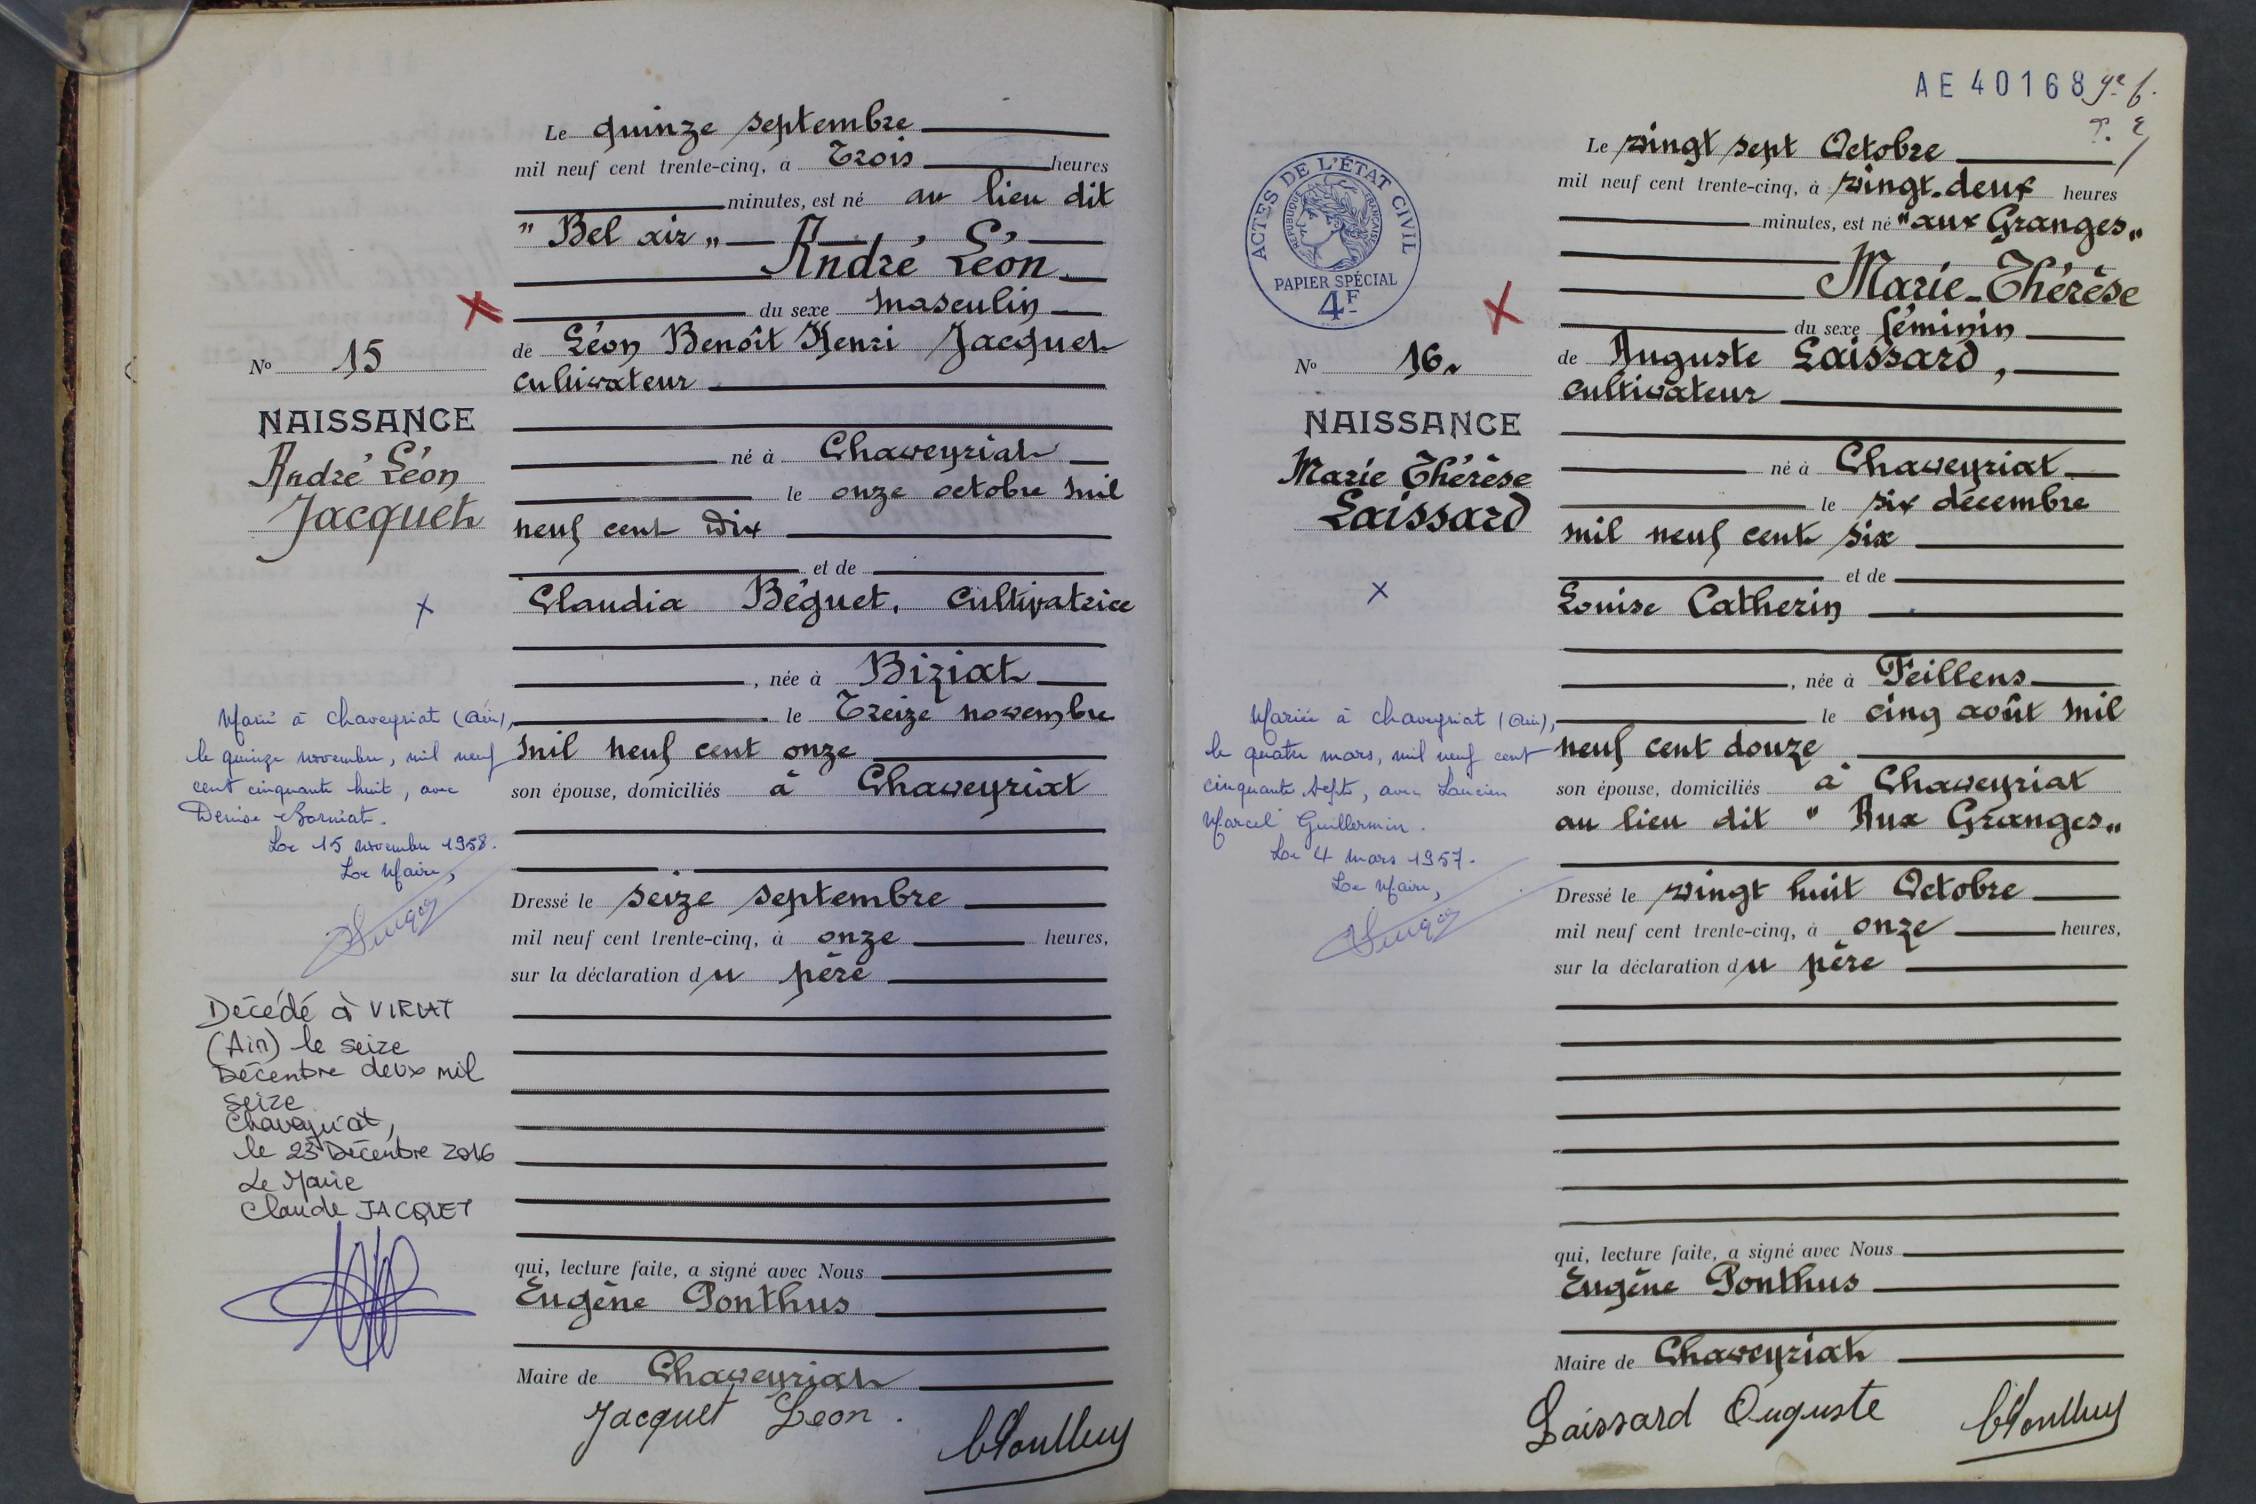 Le quinze septembre
mil neuf cent trente-cinq, à Trois heures
minutes, est né au lieu dit
" Bel air "
André Léon
du sexe masculin
de Léon Benoît Henri Jacquet
cultivateur
né à Chaveyriat
le onze octobre mil
neuf cent dix
et de
Claudia Béguet, Cultivatrice
, née à Biziat
le Treize novembre
mil neuf cent onze
son épouse, domiciliés à Chaveyriat
Dressé le seize septembre
mil neuf cent trente-cinq, à onze heures,
sur la déclaration du père
qui, lecture faite, a signé avec Nous
Eugène Ponthus
Maire de Chaveyriat
Jacquet Leon.
Nº 15
NAISSANCE
André Léon
Jacquet
x
Marié à Chaveyriat (Ain),
le quinze novembre, mil neuf
cent cinquante huit, avec
Denise
Le 15 novembre 1958.
Le Maire,
Décédé à VIRIAT
(Ain) le seize
Décembre deux mil
seize
Chaveyriat,
le 23 Décembre 2016
Le Maire
Claude JACQUET
AE 40168
ACTES DE L'ÉTAT CIVIL
RÉPUBLIQUE FRANÇAISE
PAPIER SPÉCIAL
4F
Le vingt sept Octobre
mil neuf cent trente-cinq, à vingt-deux heures
minutes, est né "aux Granges"
Marie-Thérèse
du sexe féminin
de Auguste Laissard,
cultivateur
né à Chaveyriat
le six décembre
mil neuf cent six
et de
Louise Catherin
, née à Feillens
le cinq août mil
neuf cent douze
son épouse, domiciliés à Chaveyriat
au lieu dit " Aux Granges"
Dressé le vingt huit Octobre
mil neuf cent trente-cinq, à onze heures,
sur la déclaration du père
qui, lecture faite, a signé avec Nous
Eugène Ponthus
Maire de Chaveyriat
Laissard Auguste
Nº 16.
NAISSANCE
Marie Thérèse
Laissard
x
Mariée à Chaveyriat (Ain),
le quatre mars, mil neuf cent
cinquante sept, avec Lucien
Marcel Guillermin.
Le 4 mars 1957.
Le Maire,